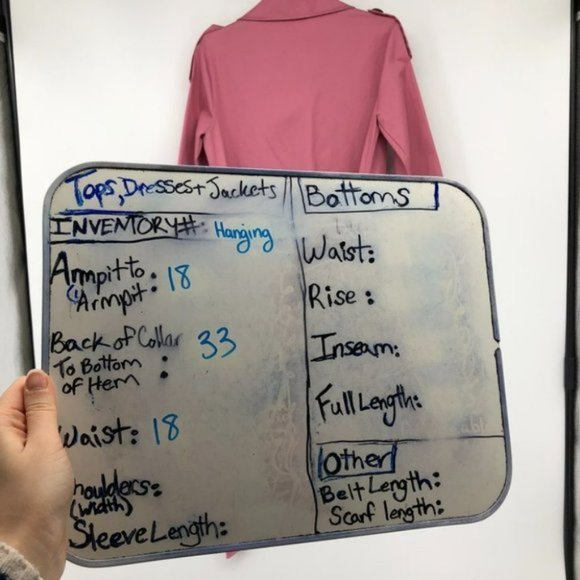 Tops, Dresses + Jackets
INVENTORY#: Hanging
Armpit to
Armpit: 18
Back of Collar
To Bottom
of Hem : 33
Waist: 18
Shoulders:
(width)
Sleeve Length:
Bottoms
Waist:
Rise:
Inseam:
Full Length:
Other
Belt Length:
Scarf length: